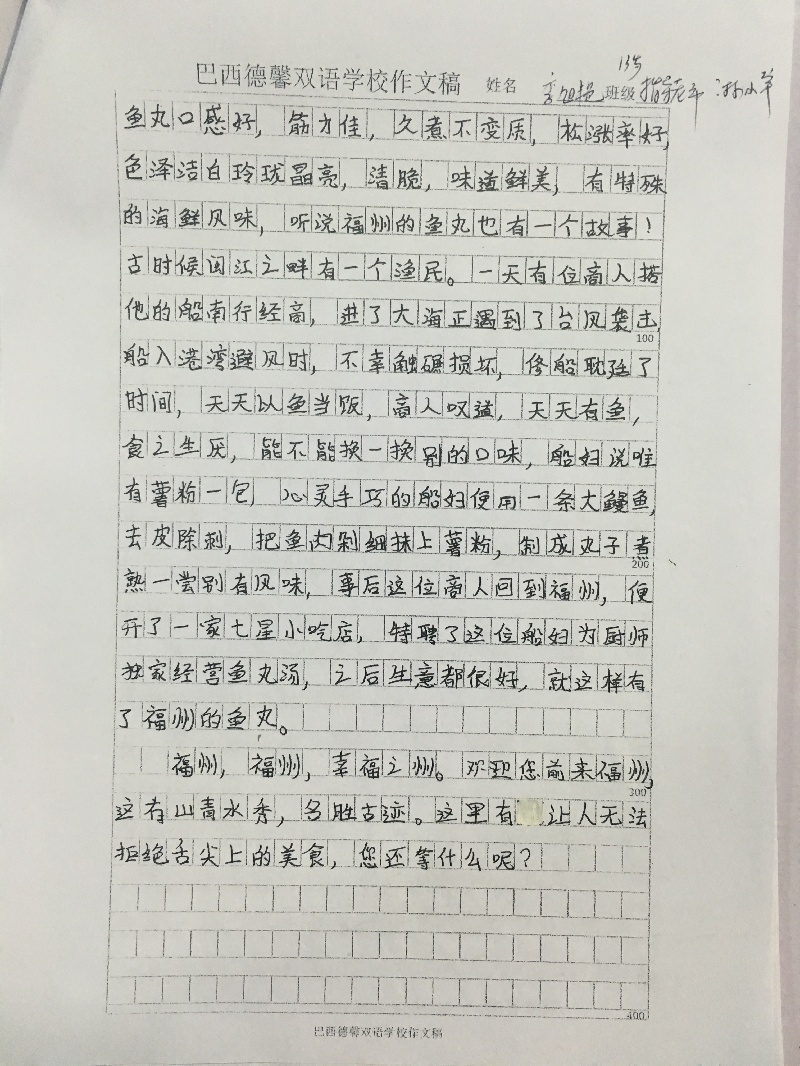 巴西德馨双语学校作文稿 姓名 班级 13岁
鱼丸口感好，筋力佳，久煮不变质，松涨率好，
色泽洁白玲珑晶亮，清脆，味道鲜美，有特殊
的海鲜风味，听说福州的鱼丸也有一个故事！
古时候闽江之畔有一个渔民。一天有位商人搭
他的船南行经商，进了大海正遇到了台风袭击，
100
船入港湾避风时，不幸触礁损坏，修船耽延了
时间，天天以鱼当饭，商人叹道，天天有鱼，
食之生厌，能不能换一换别的口味，船妇说唯
有薯粉一包，心灵手巧的船妇便用一条大鳗鱼，
去皮除刺，把鱼肉剁细抹上薯粉，制成丸子煮
200
熟一尝别有风味，事后这位商人回到福州，便
开了一家七星小吃店，特聘了这位船妇为厨师
独家经营鱼丸汤，之后生意都很好，就这样有
了福州的鱼丸。
福州，福州，幸福之州。欢迎您前来福州，
300
这有山青水秀，名胜古迹。这里有让人无法
拒绝舌尖上的美食，您还等什么呢？
400
巴西德馨双语学校作文稿